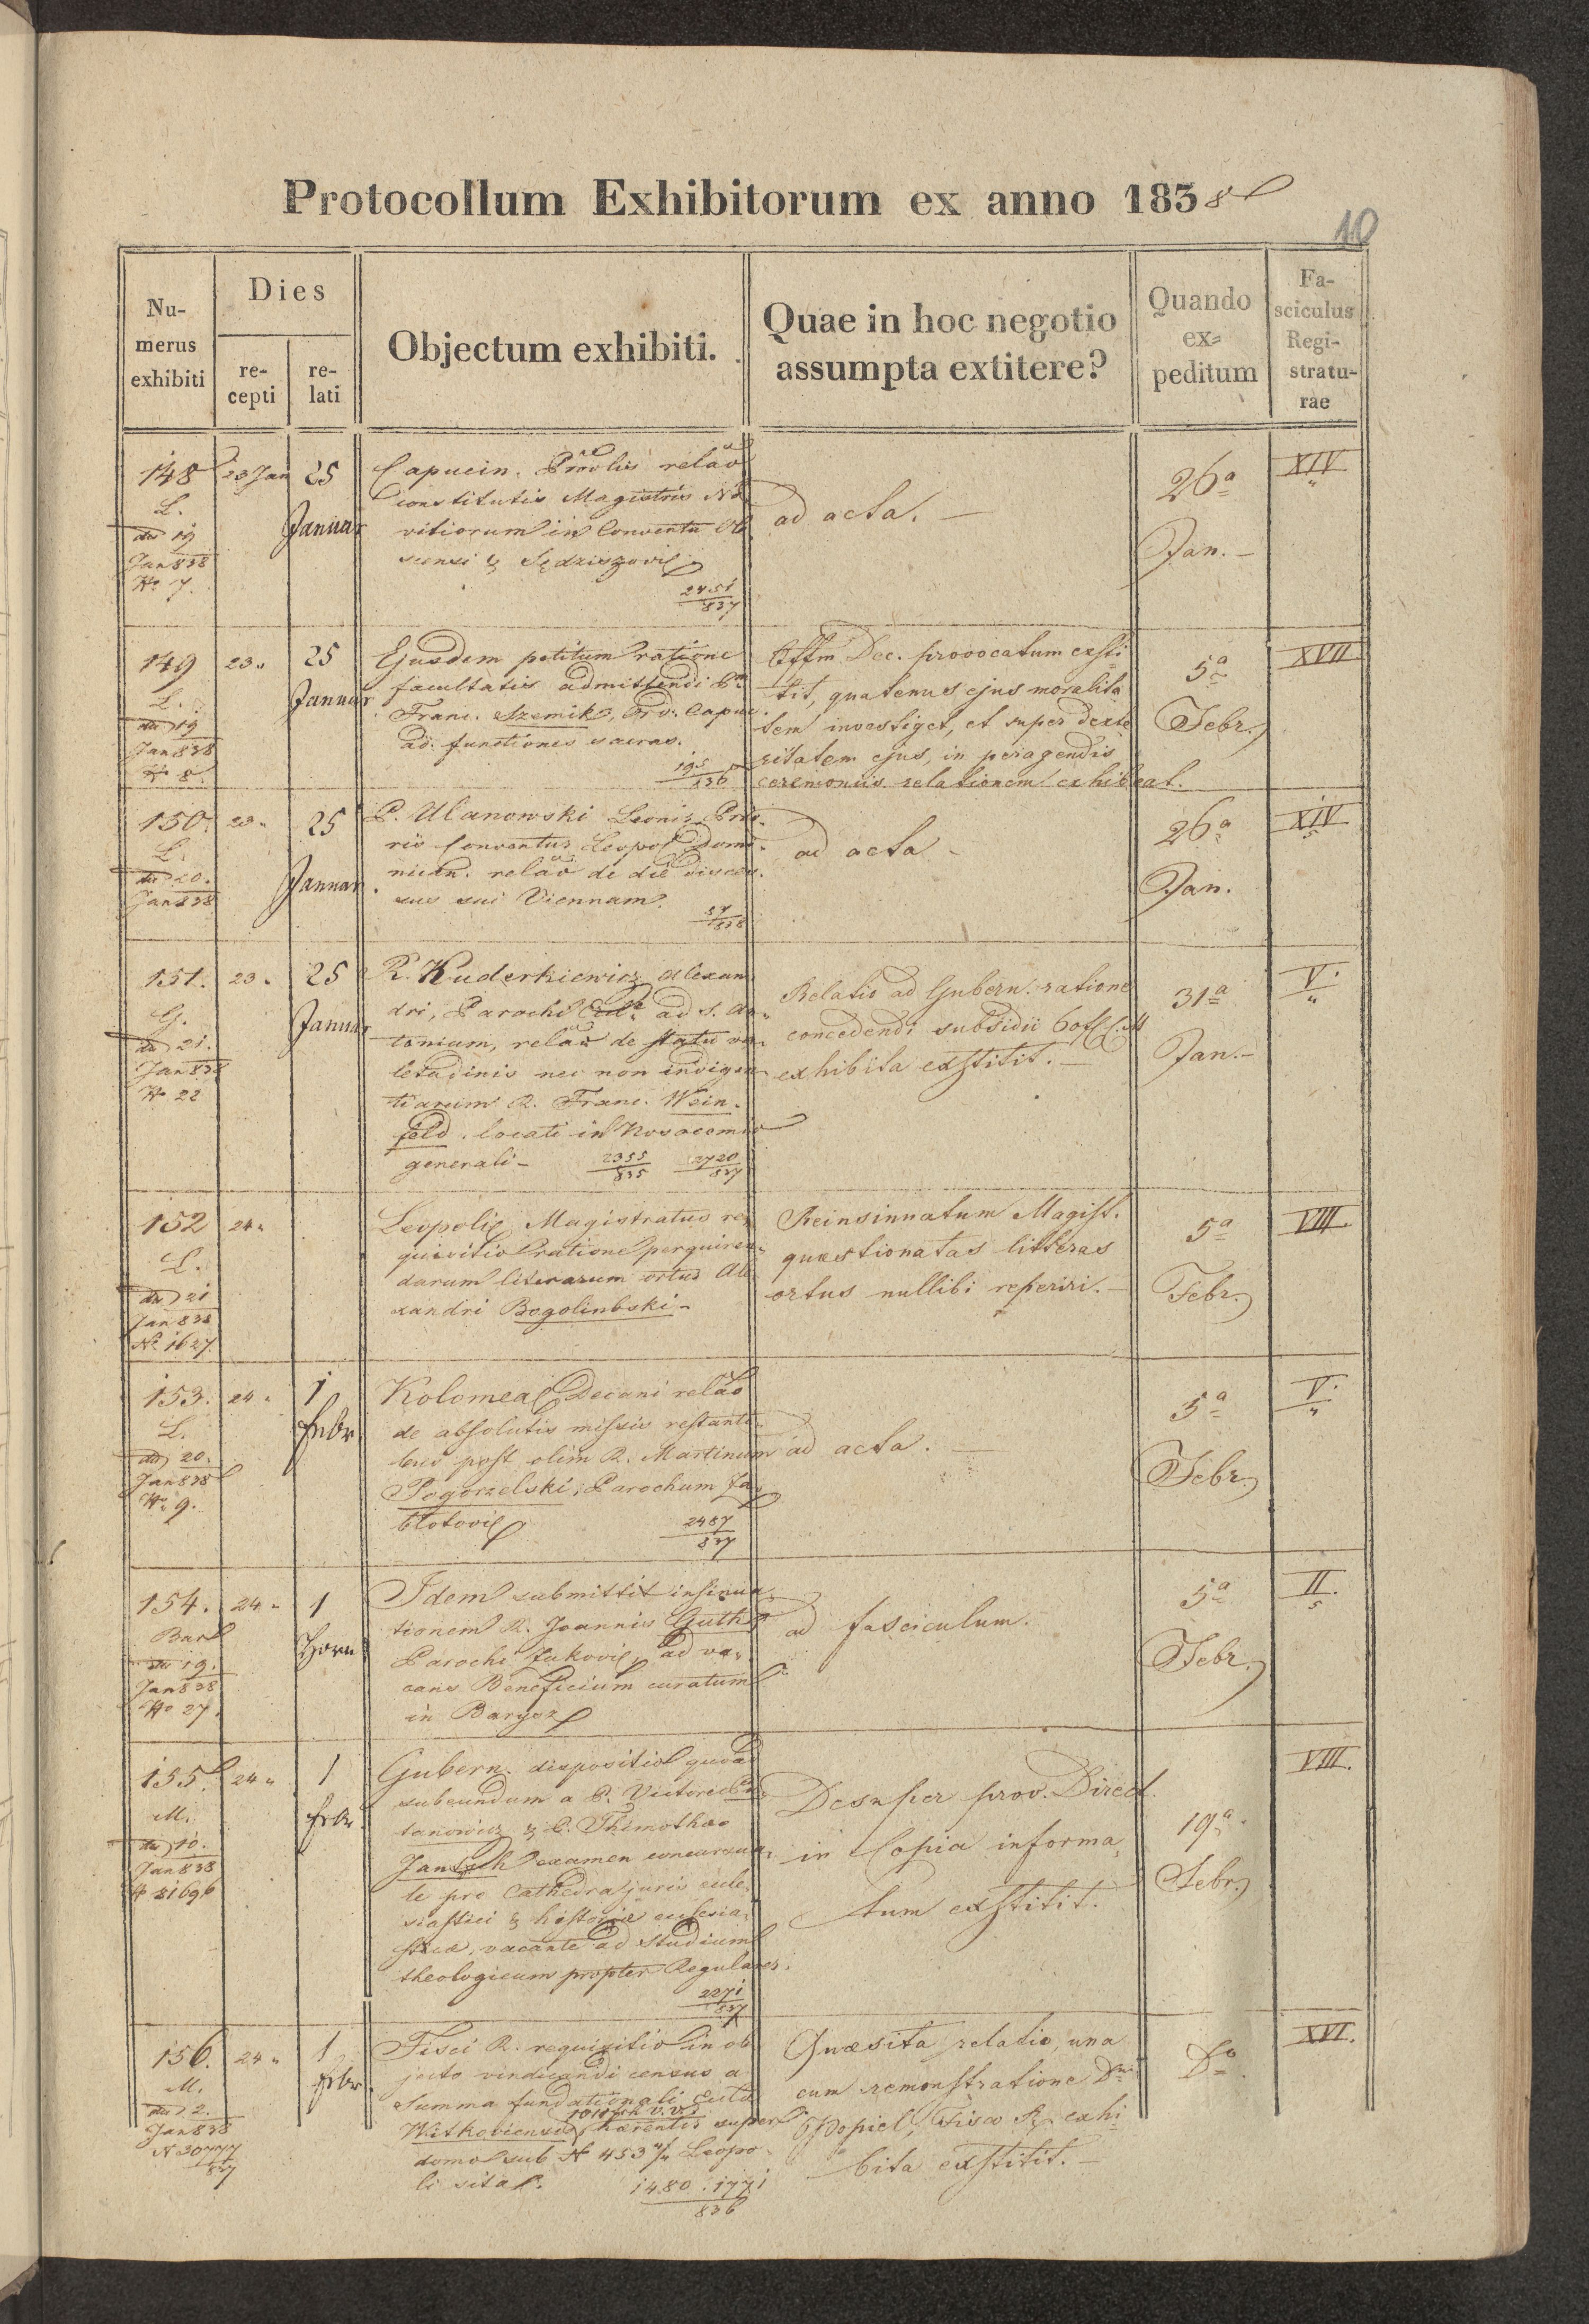 Protocollum Exhibitorum ex anno 1838
10
Nu-
merus
exhibiti
Dies
re-
cepti
re-
lati
Objectum exhibiti.
Quae in hoc negotio
assumpta extitere?
Quando
ex-
peditum
Fa-
sciculus
Regi-
stratu-
rae
148
L.
dto 19
Jan 838
No 7.
23 Jan
25
Januar
Capucin. Provlis relao
constitutis Magistris No
vitiorum in Conventu
scensi & Sędziszovi
2451
837
ad acta. —
26a
Jan. —
XIV
149
L.
dto 19
Jan 838
No 8.
23 „
25
Januar
Ejusdem petitum ratione
facultatis admittendi
Franc. Szemik, Ord. Capuc.
ad functiones sacras.
195
836
Offm Dec. provocatum exsti
tit, quatenus ejus moralita
tem investiget, et super dexte
ritatem ejus, in peragendis
ceremoniis relationem exhibeat.
5a
Febr.
XVII
150.
L.
dto 20.
Jan 838
23 „
25
Januar.
P. Ulanowski Leonis Prio-
ris Conventus Leopol Domi-
nican. relao de die disces-
sus sui Viennam.
37
838
ad acta -
26a
Jan.
XIV
5
151.
G.
dto 21.
Jan 838
No 22
23 „
25
Januar
R. Kuderkiewicz Alexan
dri, Parochi ad S. An„
tonium, relao de statu va„
letudinis nec non indigen„
tiarum R. Franc. Wein-
feld. locati in Nosocomio
generali -
2355
835
2720
837
Relatio ad Gubern. ratione
concedendi subsidii 60
exhibita exstitit. —
31a
Jan. -
V.
152
L.
dto 21
Jan 838
No 1627
24 „
Leopolis Magistratus re„
quisitio ratione perquiren„
darum literarum ortus Ale
xandri Bogolinbski -
Reinsinuatum Magist.
quaestionatas litteras
ortus nullibi reperiri. —
5a
Febr.
VIII.
153.
L.
dto 20.
Jan 838
No 9.
24 „
1
Febr.
Kolomea Decani relao
de absolutis missis restanti„
bus post olim R. Martinum
Pogorzelski, Parochum Ja„
blotovi
2487
837
ad acta. —
5a
Febr.
V.
154.
Bar
dto 19.
Jan 838
No 27.
24 „
1
Idem submittit insinua„
tionem R. Joannis Guth
Parochi Jukovi, ad va„
cans Beneficium curatum
in Barysz
ad fasciculum.
5a
Febr.
II.
5
155.
M.
dto 10.
Jan 838
24 „
1
Febr
Gubern. dispositio quoad
subeundum a P. Victore
tanowicz & P. Thimotheo
Jantsch examen concursua„
le pro Cathedra juris eccle„
siastici & historiae ecclesia„
sticae, vacante ad studium
theologicum propter Regulares.
2271
837
Desuper prov. Direct.
in Copia informa„
tum exstitit.
19a
Febr.
VIII.
156.
M.
dto 2.
Jan 838
N 30777
837
24 „
1
Febr.
Fisci R. requisitio in ob
jecto vindicandi census a
summa fundationali Ecclae
Witkoviensis haerentis super
domo sub N 453 Leopo
li sita.
1480. 1771
836
Quaesita relatio, una
cum remonstratione Dni
Popiel, Fisco R. exhi
bita exstitit. —
Do
XVI.